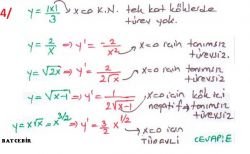 4/ y = |x|/3 ⇒ x=0 K.N. tek kat köklerde türev yok.
y = 2/x ⇒ y' = -2/x² ⇒ x=0 için tanımsız türevsiz.
y = √2x ⇒ y' = 2/2√x ⇒ x=0 için tanımsız türevsiz.
y = √x-1 ⇒ y' = 1/2√x-1 ⇒ x=0 için kök içi negatif → tanımsız türevsiz
y = x√x = x^3/2 ⇒ y' = 3/2 x^1/2 ⇒ x=0 için TÜREVLİ
CEVAP: E
BATCEBİR